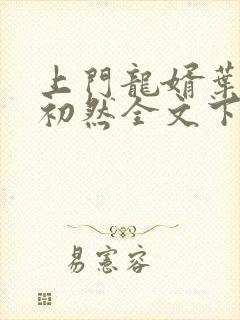 上門龍婿葉
初然全文下
易憲容